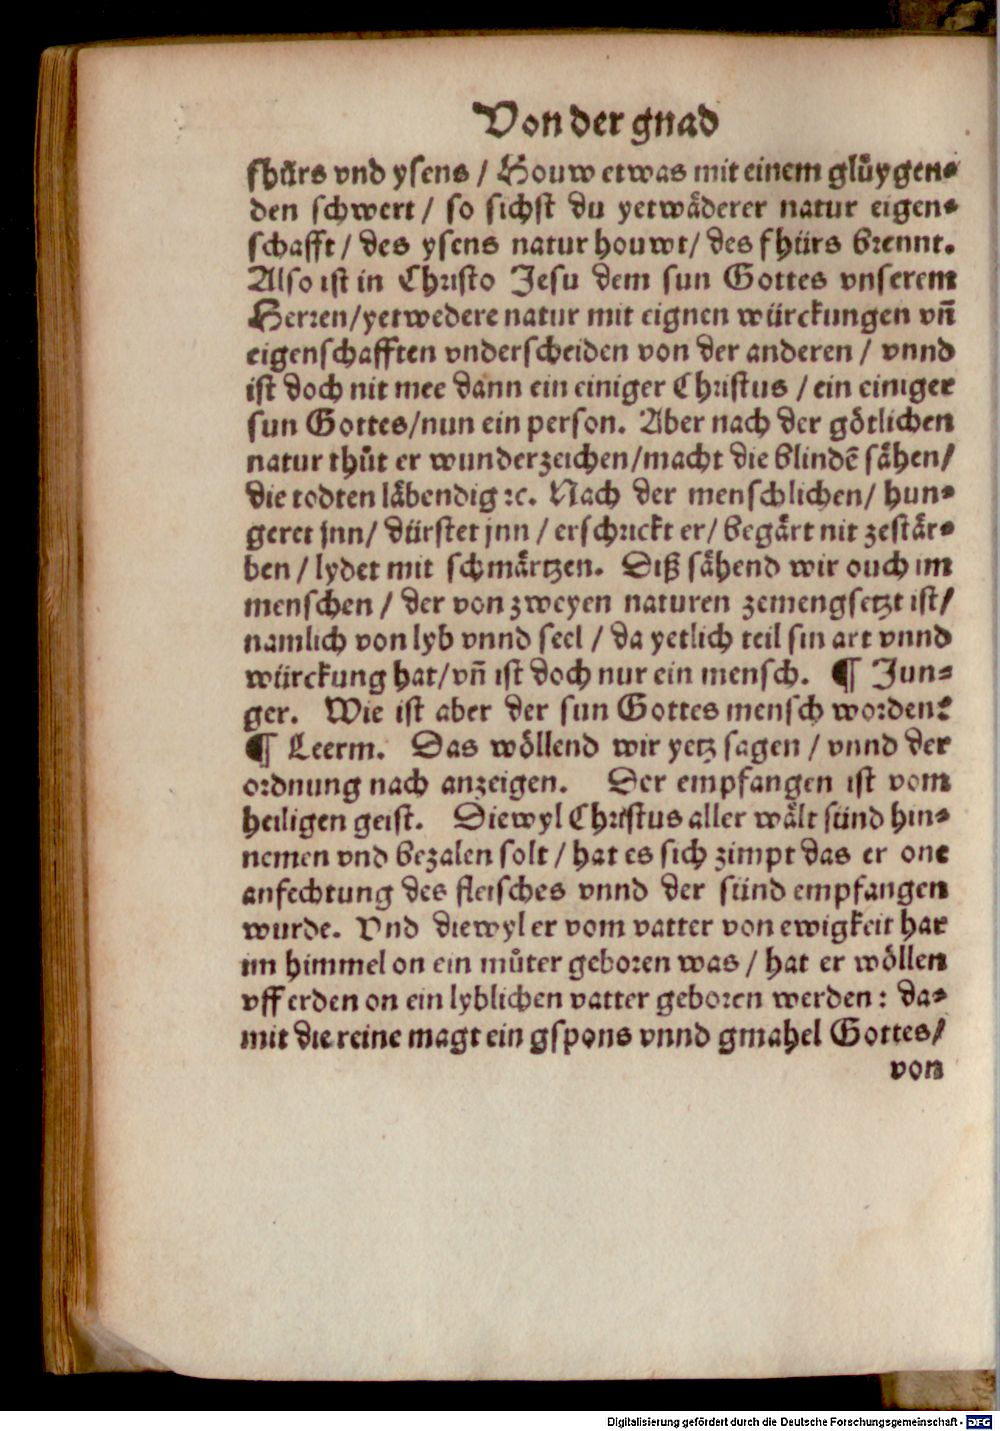 Von der gnad
fhürs vnd ysens / Houw etwas mit einem glüygen⸗
den schwert / so sichst du yetwäderer natur eigen⸗
schafft / des ysens natur houwt / des fhürs brennt.
Also ist in Christo Jesu dem sun Gottes vnserem
Herren / yetwedere natur mit eignen würckungen vn̄
eigenschafften vnderscheiden von der anderen / vnnd
ist doch nit mee dann ein einiger Christus / ein einiger
sun Gottes / nun ein person. Aber nach der götlichen
natur thůt er wunderzeichen / macht die blindē sähen /
die todten läbendig ⁊c. Nach der menschlichen / hun⸗
geret jnn / dürstet jnn / erschrickt er / begärt nit zestär⸗
ben / lydet mit schmärtzen. Diß sähend wir ouch im
menschen / der von zweyen naturen zemengsetzt ist /
namlich von lyb vnnd seel / da yetlich teil sin art vnnd
würckung hat / vn̄ ist doch nur ein mensch. ¶ Jun⸗
ger. Wie ist aber der sun Gottes mensch worden?
¶ Leerm. Das wöllend wir yetz sagen / vnnd der
ordnung nach anzeigen. Der empfangen ist vom
heiligen geist. Diewyl Christus aller wält sünd hin⸗
nemen vnd bezalen solt / hat es sich zimpt das er one
anfechtung des fleisches vnnd der sünd empfangen
wurde. Vnd diewyl er vom vatter von ewigkeit har
im himmel on ein můter geboren was / hat er wöllen
vff erden on ein lyblichen vatter geboren werden: da⸗
mit die reine magt ein gspons vnnd gmahel Gottes /
von
Digitalisierung gefördert durch die Deutsche Forschungsgemeinschaft - DFG